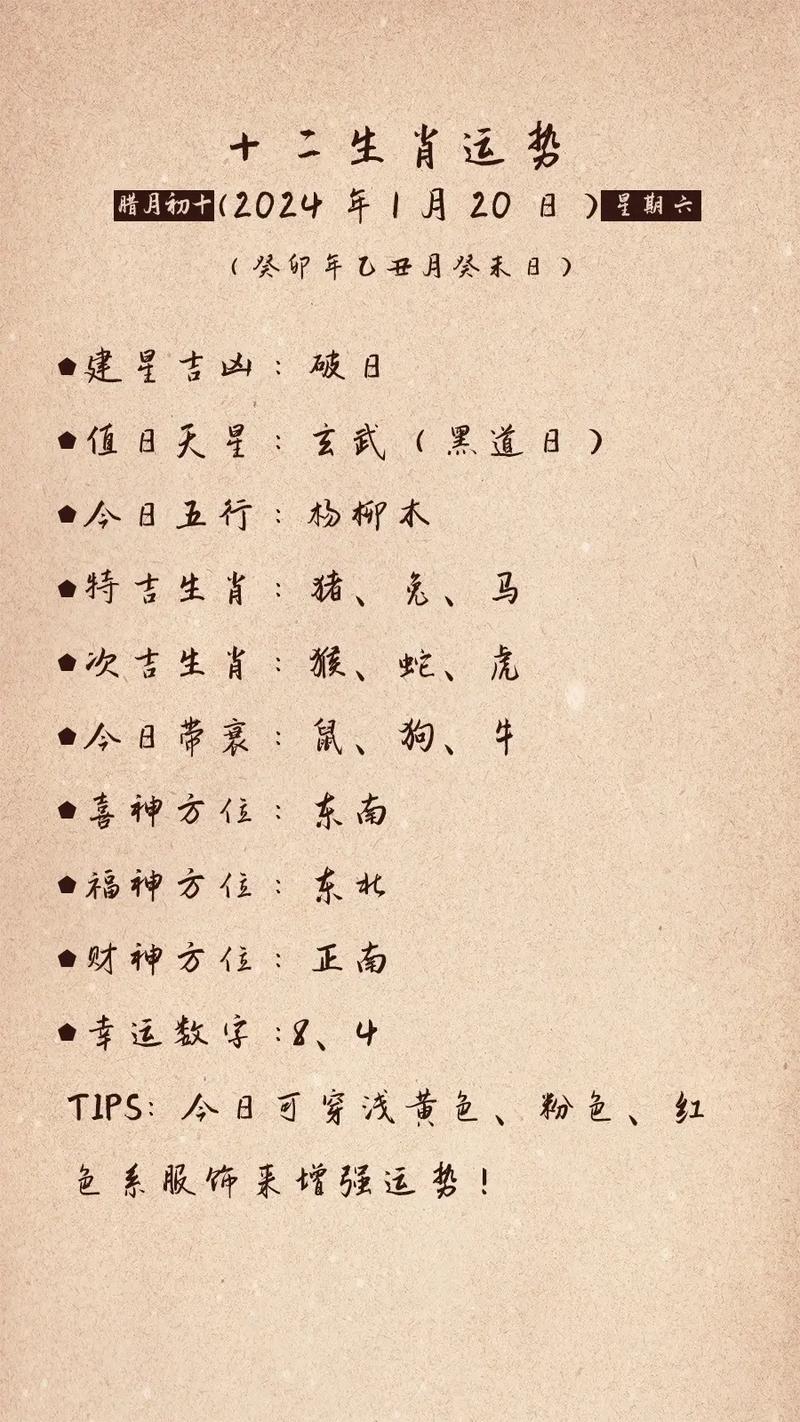 十二生肖运势
腊月初十(2024年1月20日)星期六
(癸卯年乙丑月癸未日)
建星吉凶:破日
值日天星:玄武(黑道日)
今日五行:杨柳木
特吉生肖:猪、兔、马
次吉生肖:猴、蛇、虎
今日带衰:鼠、狗、牛
喜神方位:东南
福神方位:东北
财神方位:正南
幸运数字:8、4
TIPS:今日可穿浅黄色、粉色、红
色系服饰来增强运势!